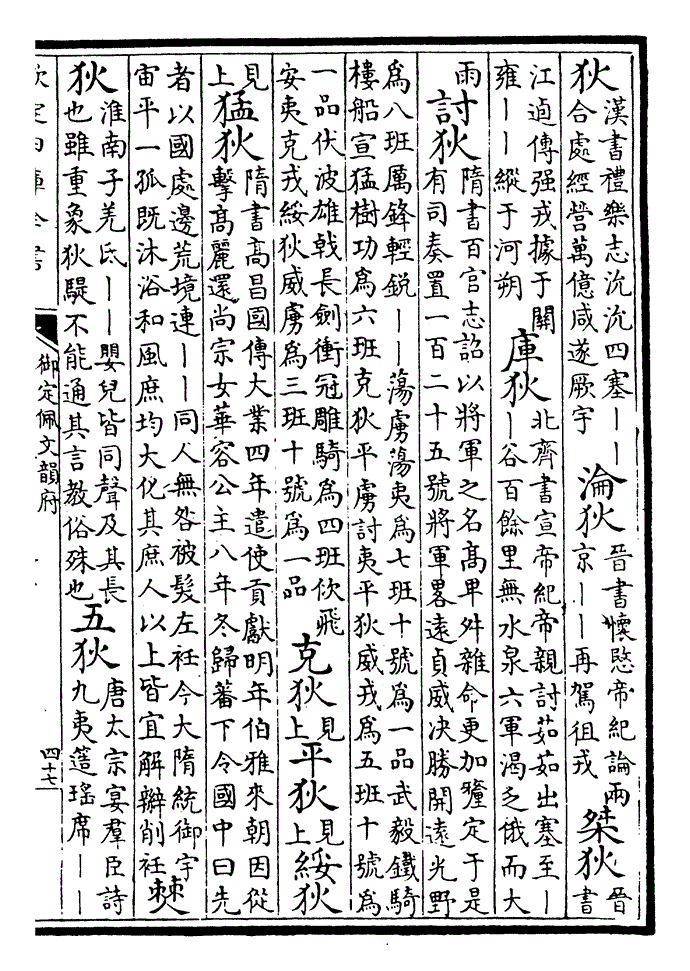 狄
漢書禮樂志沇沇四塞丨丨
合處經營萬億咸遂厥宇
淪狄
晉書懷愍帝紀論兩
京丨丨再駕徂戎
桀狄
晉
書
江逌傳强戎據于關
雍丨丨縱于河朔
庫狄
北齊書宣帝紀帝親討茹茹出塞至丨
丨谷百餘里無水泉六軍渴乏俄而大
雨
討狄
隋書百官志詔以將軍之名高卑舛雜命更加釐定于是
有司奏置一百二十五號將軍畧遠貞威决勝開遠光野
爲八班厲鋒輕銳丨丨蕩虜蕩夷爲七班十號爲一品武毅鐵騎
樓船宣猛樹功爲六班克狄平虜討夷平狄威戎爲五班十號爲
一品伏波雄戟長劍衝冠雕騎爲四班佽飛
安夷克戎綏狄威虜爲三班十號爲一品
克狄
見
上
平狄
見
上
綏狄
見
上
猛狄
隋書高昌國傳大業四年遣使貢獻明年伯雅來朝因從
擊高麗還尚宗女華容公主八年冬歸蕃下令國中曰先
者以國處邊荒境連丨丨同人無咎被髮左衽今大隋統御宇
宙平一孤既沐浴和風庶均大化其庶人以上皆宜解辮削衽
僰
狄
淮南子羌氐丨丨嬰兒皆同聲及其長
也雖重象狄騠不能通其言教俗殊也
五狄
唐太宗宴羣臣詩
九夷簉瑤席丨丨
欽定四庫全書
御定佩文韻府
四十七